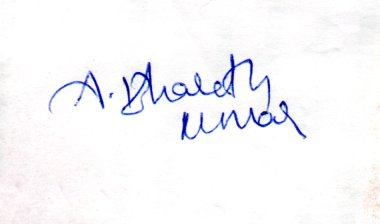 A. Bharath
Kumar